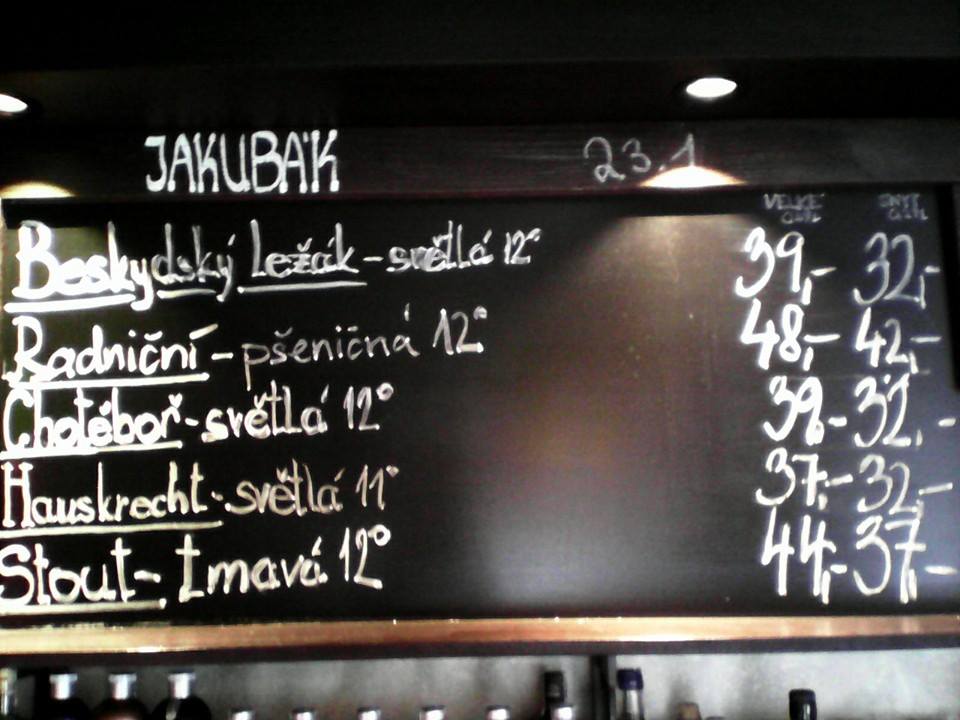 JAKUBÁK 23.1
VELKÉ
Beskydský ležák - světlá 12° 39,- 32,-
Radniční - pšeničná 12° 48,- 42,-
Chotěboř - světlá 12° 39,- 32,-
Hauskrecht - světlá 11° 37,- 32,-
Stout - tmavá 12° 44,- 37,-